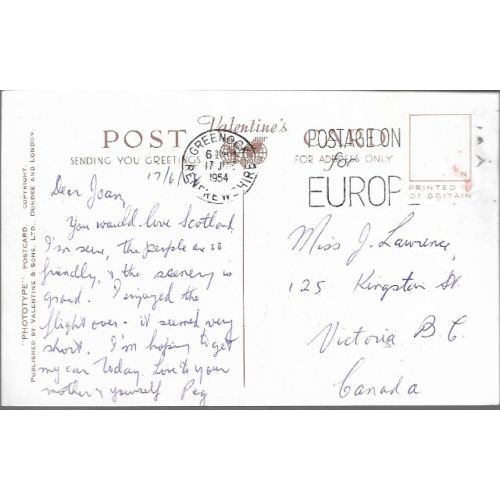 Valentine's
POST CARD
SENDING YOU GREETINGS
FOR ADDRESS ONLY
GREENOCK
6
17 J
1954
RENFREWSHIRE
POSTAGE ON
for
EUROP
PRINTED IN
GT BRITAIN
"PHOTOTYPE" POSTCARD. COPYRIGHT.
PUBLISHED BY VALENTINE & SONS, LTD., DUNDEE AND LONDON.
17/6/54
Dear Joan,
You would love Scotland
I'm sure, the people are so
friendly, & the scenery is
grand. I enjoyed the
flight over - it seemed very
short. I'm hoping to get
my car today. Love to your
mother & yourself Peg
Miss J. Lawrence,
125 Kingston St.
Victoria B.C.
Canada